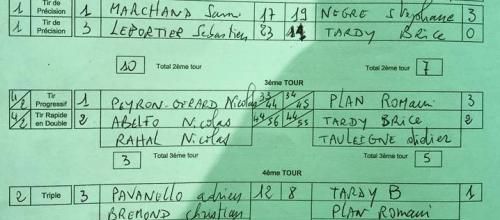 1 Tir de Précision 1 MARCHAND Sami 17 19 NEGRE Stéphane 3
1 Tir de Précision 3 LEPORTIER Sébastien 23 TARDY Brice 0
10 Total 2ème tour Total 2ème tour 7
3ème TOUR
4/2 Tir Progressif 1 PEYRON-GERARD Nicolas 33/44 34/45 PLAN Romain 3
4/2 Tir Rapide en Double 2 ABELFO Nicolas 44/56 44/55 TARDY Brice 2
RAHAL Nicolas TAULEIGNE didier
3 Total 3ème tour Total 3ème tour 5
4ème TOUR
2 Triple 3 PAVANELLO adrien 12 8 TARDY B 1
BREMOND christian PLAN Romain